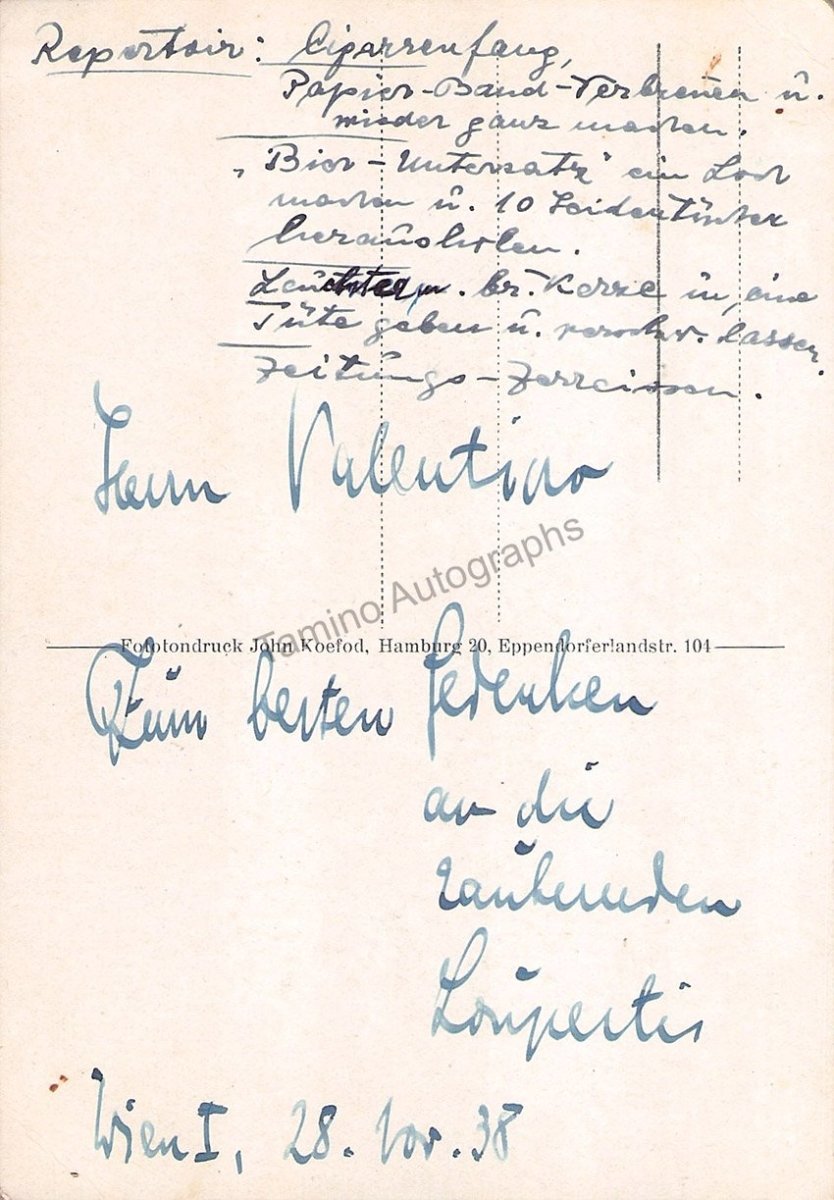 Repertoir: Cigarrenfang,
Papier-Band-Verbrennen u.
wieder ganz machen.
„Bier-Untersatz" ein Loch
machen u. 10 Seidentücher
herausholen.
br. Kerze in eine
Tüte geben u. verschw. lassen.
Zeitungs-Zerreissen.
Herrn Valentino
Tamino Autographs
Fototondruck John Koefod, Hamburg 20, Eppendorferlandstr. 104
Zum besten Gedenken
an die
zaubernden
Loupertis
Wien I, 28. Nov. 38